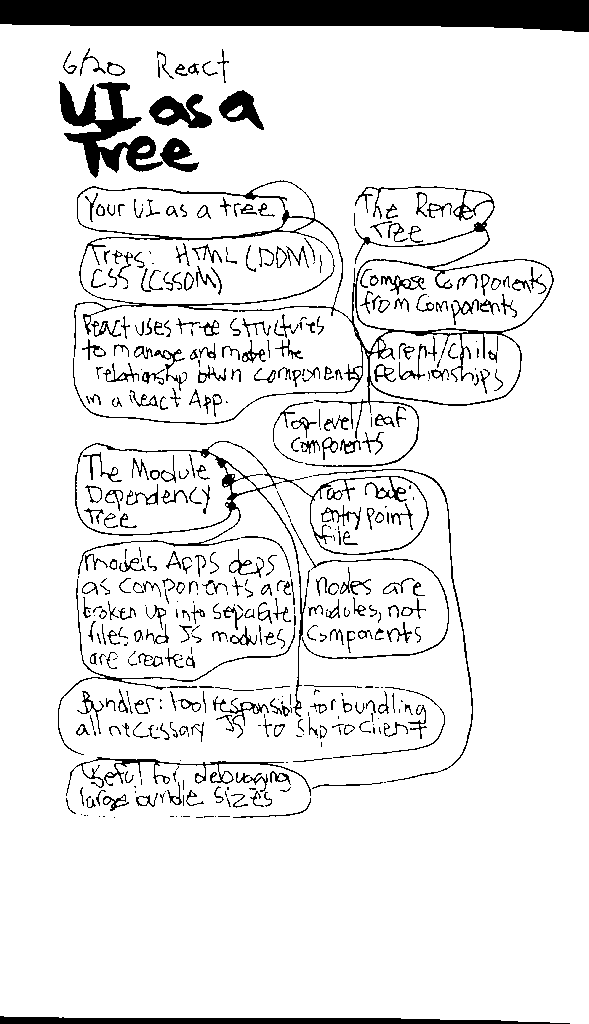 6/20 React
UI as a
Tree
Your UI as a tree
Trees: HTML (DOM),
CSS (CSSOM)
React uses tree structures
to manage and model the
relationship btwn components
in a React App.
The Render
Tree
Compose Components
from Components
Parent/Child
relationships
Top-level/leaf
components
The Module
Dependency
Tree
root node:
entry point
file
models App's deps
as components are
broken up into separate
files and JS modules
are created
nodes are
modules, not
components
Bundler: tool responsible for bundling
all necessary JS to ship to client
Useful for debugging
large bundle sizes